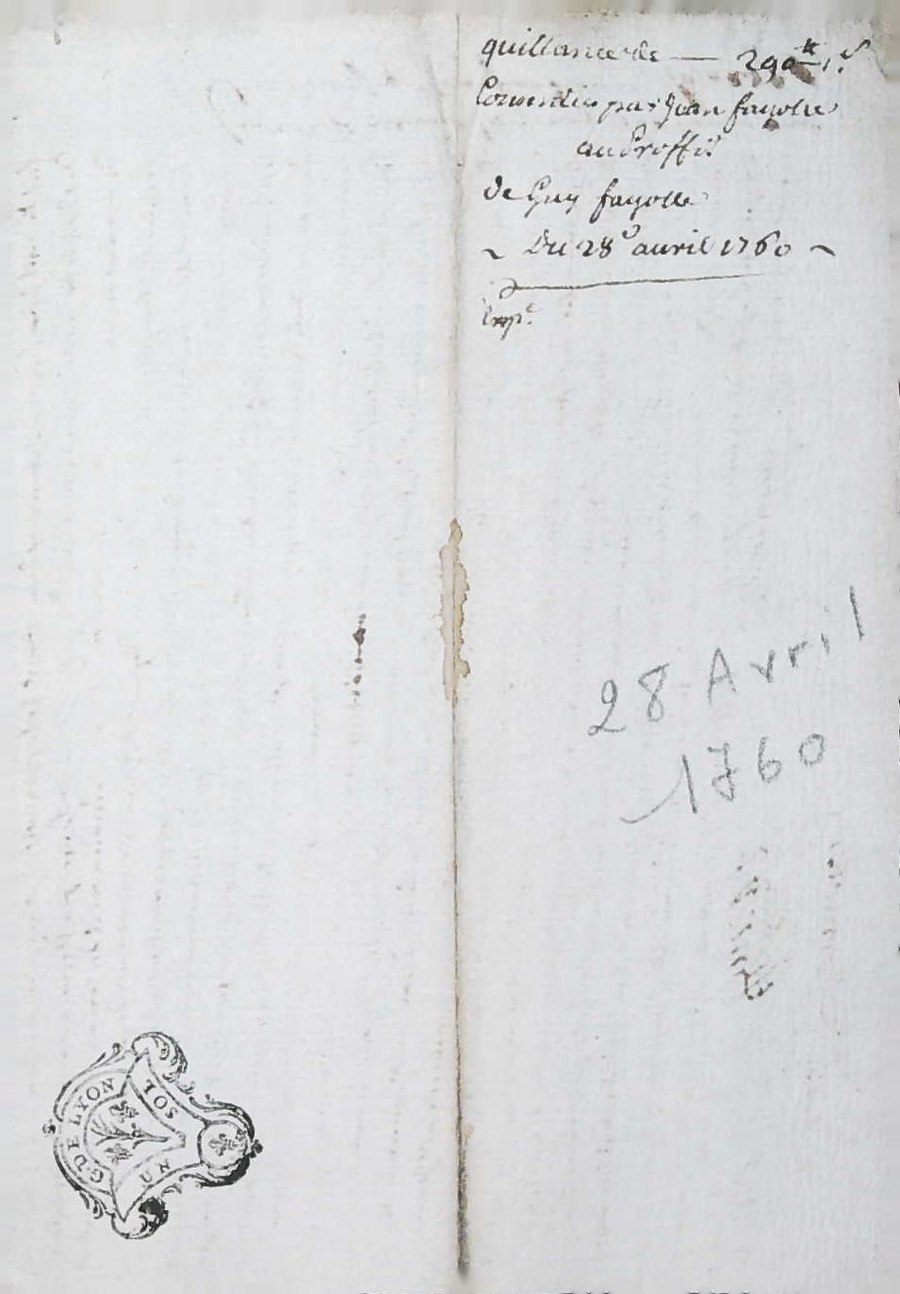 quittance de — 290ᵗᵗ 1ˢ
Consentie par Jean fayolle
au Proffit
de Guy fayolle
~ Du 28ᵉ auril 1760 ~
Exp.ᵉ
28 Avril
1760
G. DE LYON
UN SOL